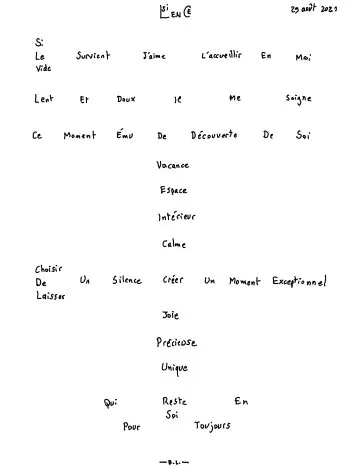 SiLENCE
29 août 2021
Si
Le Survient J'aime L'accueillir En Moi
Vide
Lent Et Doux Je Me Soigne
Ce Moment Ému De Découverte De Soi
Vacance
Espace
Intérieur
Calme
Choisir
De Un Silence Créer Un Moment Exceptionnel
Laisser
Joie
Précieuse
Unique
Qui Reste En
Soi
Pour Toujours
—B.L.—